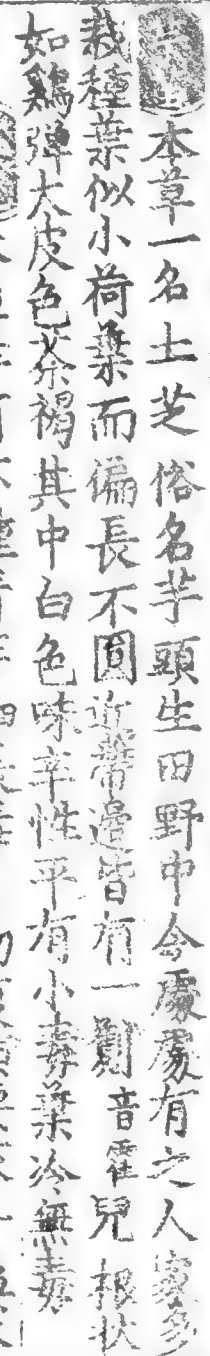 本草一名土芝俗名芋頭生田野中今處處有之人家多
栽種葉似小荷葉而偏長不圓近蔕邊皆有一劐音霍兒根狀
如鷄彈大皮色茶褐其中白色味辛性平有小毒葉冷無毒